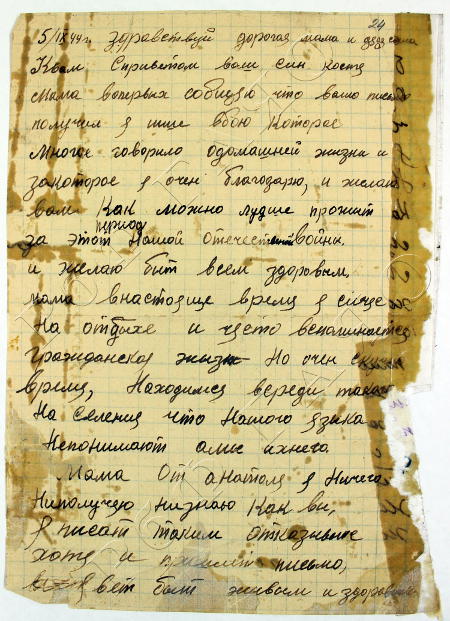 24
5/IX 44 г. Здравствуй дорогая мама и дядя
Квам Сприветом ваш син костя
Мама воперьвых собщяю что вашо письмо
получил я ище вбою Которое
многое говорило одомашней жизни и
закоторое я очен благодарю, и желаю
вам Как можно лудше прожит
за этот период Нашой отечественой войни
и желаю быт всем здоровым,
мама внастояще время я сичас
На отдыхе и чясто вспоминается
гражданская жизн Но очен
время, Находимся вереди такого
На селения что Нашого языка
Непонимают амы ихнего
Мама От анатоля я Ничего
Ниполучяю низнаю Как ви,
Я писат таким отказываюс
хотя и письмо,
быт живым и здоровым